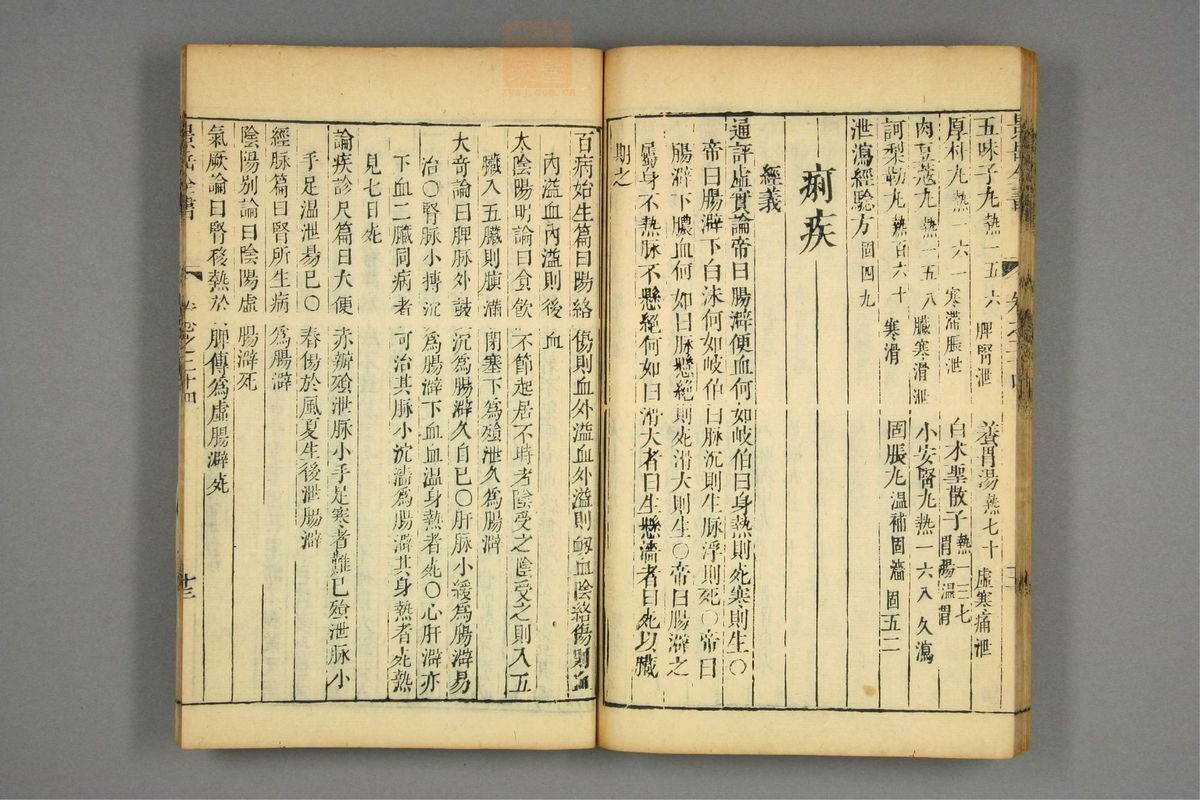 五味子丸熱一五六 脾腎泄 養胃湯熱七十 虛寒痛泄
原杓丸熱一六一 寒滯脹泄 白朮聖散子熱一三七 胃陽溫胃
肉豆蔻丸熱一五八 臟寒滑泄 小安腎丸熱一六八 久瀉
訶梨勒丸熱百六十 寒滑 固腸丸溫補固濇 固五二
泄瀉經驗方固四九
痢疾
經義
通評虛實論帝曰腸澼便血何如岐伯曰身熱則死寒則生〇
帝曰腸澼下白沫何如岐伯曰脉沉則生脉浮則死〇帝曰
腸澼下膿血何如曰脉懸絕則死滑大則生〇帝曰腸澼之
屬身不熱脉不懸絕何如曰滑大者曰生懸濇者曰死以臟
期之
百病始生篇曰陽絡傷則血外溢血外溢則衄血陰絡傷則血
內溢血內溢則後血
太陰陽明論曰食飲不節起居不時者陰受之陰受之則入五
臟入五臟則䐜滿閉塞下為飱泄久為腸澼
大奇論曰脾脉外鼓沉為腸澼久自已〇肝脉小緩為腸澼易
治〇腎脉小搏沉為腸澼下血血溫身熱者死〇心肝澼亦
下血二臟同病者可治其脉小沉濇為腸澼其身熱者死熱
見七日死
論疾診尺篇曰大便赤瓣飱泄脉小手足寒者難已飱泄脉小
手足溫泄易已〇春傷於風夏生後泄腸澼
經脉篇曰腎所生病為腸澼
陰陽别論曰陰陽虛腸澼死
氣厥論曰腎移熱於脾傳為虛腸澼死
景岳全書
卷之二十四
十三